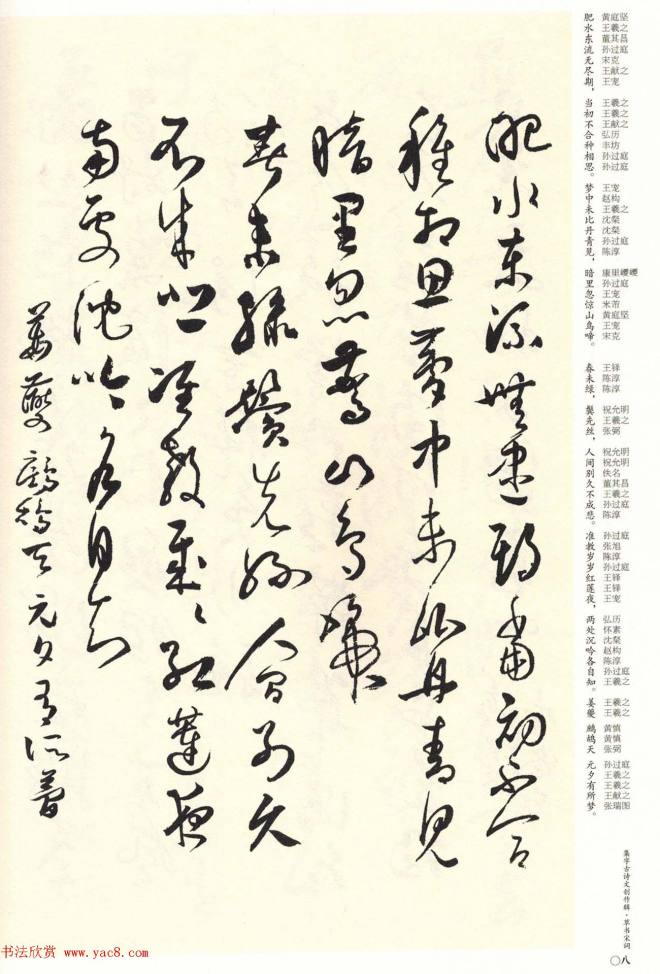 黄庭坚 王羲之 董其昌 孙过庭 宋克 王献之 王宠 王羲之 王羲之 王献之 弘历 丰坊 孙过庭 孙过庭 王宠 赵构 王羲之 沈粲 沈粲 孙过庭 陈淳 康里巎巎 孙过庭 王宠 米芾 黄庭坚 王宠 宋克 王铎 陈淳 陈淳 祝允明 王羲之 张弼 祝允明 祝允明 佚名 董其昌 王羲之 孙过庭 陈淳 孙过庭 张旭 陈淳 孙过庭 王铎 王铎 王宠 弘历 怀素 沈粲 赵构 陈淳 孙过庭 王羲之 王羲之 王羲之 黄慎 黄慎 张弼 孙过庭 王羲之 王羲之 王献之 张瑞图
肥水东流无尽期，当初不合种相思。梦中未比丹青见，暗里忽惊山鸟啼。 春未绿，鬓先丝，人间别久不成悲。准教岁岁红莲夜，两处沉吟各自知。 姜夔 鹧鸪天 元夕有所梦。
肥水东流无尽期当初不合
种相思梦中未比丹青见
暗里忽惊山鸟啼
春未绿鬓先丝人间别久
不成悲谁教岁岁红莲夜
两处沉吟各自知
姜夔鹧鸪天元夕有所梦
集字古诗文创作辑·草书宋词
〇八
书法欣赏 www.yac8.com